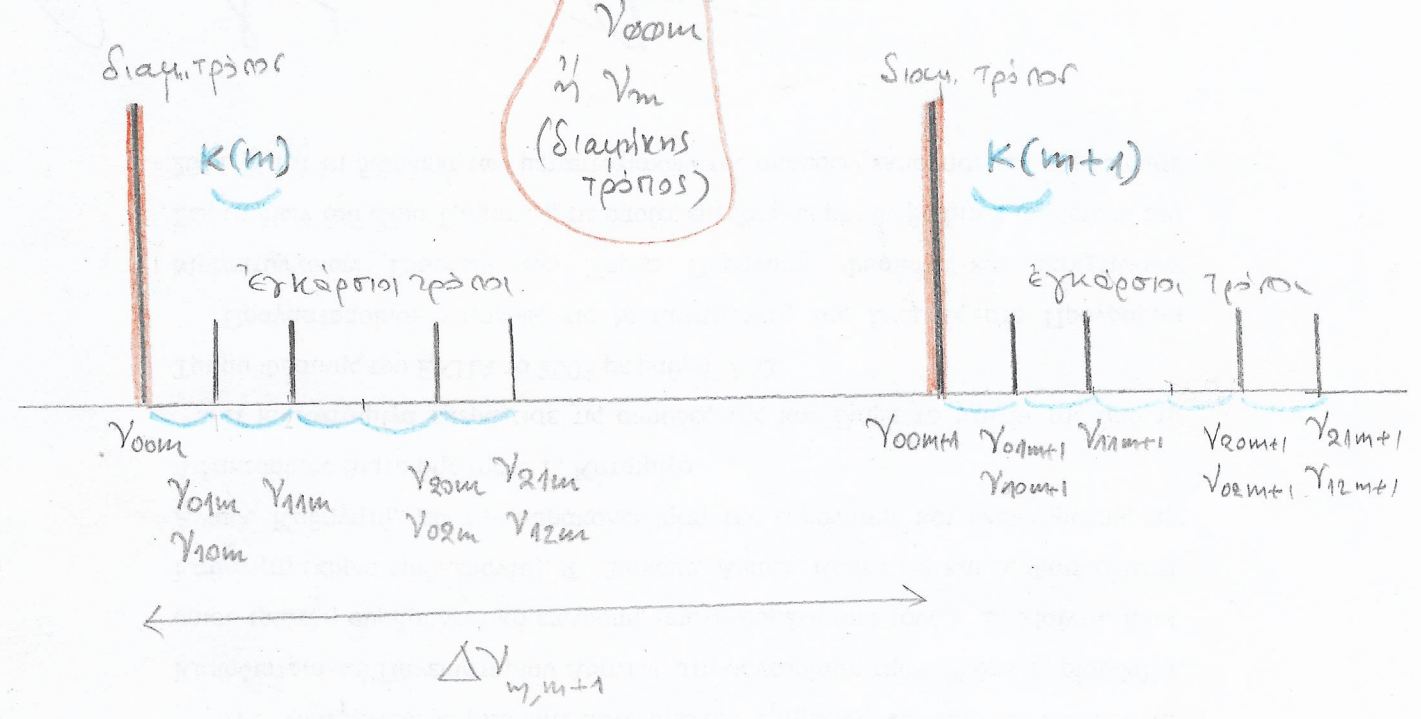 ν₀₀ₘ
ή νₘ
(διαμήκης
τρόπος)
διαμ. τρόπος
διαμ. τρόπος
κ(m)
κ(m+1)
εγκάρσιοι τρόποι
εγκάρσιοι τρόποι
ν₀₀ₘ
ν₀₁ₘ ν₁₁ₘ ν₂₀ₘ ν₂₁ₘ
ν₁₀ₘ ν₀₂ₘ ν₁₂ₘ
ν₀₀ₘ₊₁ ν₀₁ₘ₊₁ ν₁₁ₘ₊₁ ν₂₀ₘ₊₁ ν₂₁ₘ₊₁
ν₁₀ₘ₊₁ ν₀₂ₘ₊₁ ν₁₂ₘ₊₁
Δν m,m+1